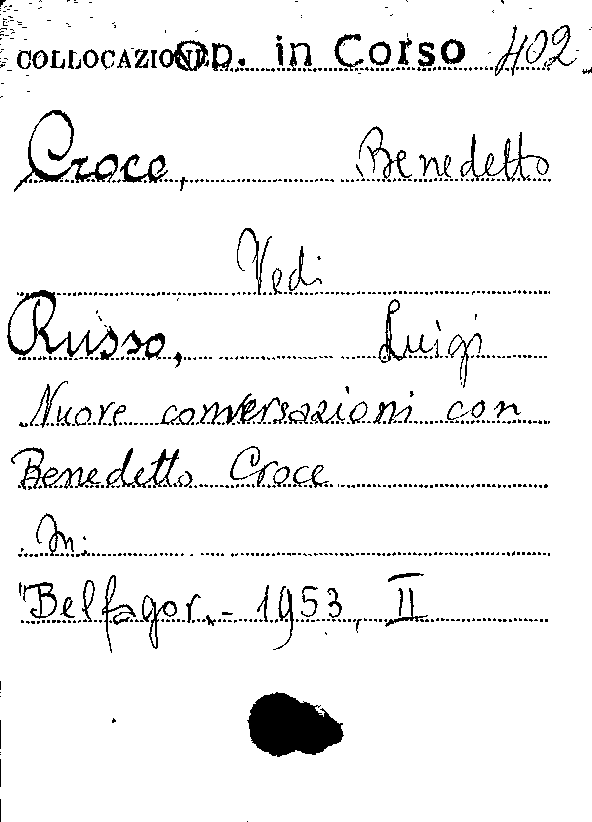 COLLOCAZIONE P. in Corso 402
Croce, Benedetto
Vedi
Russo, Luigi
Nuove conversazioni con
Benedetto Croce
In:
"Belfagor.- 1953, II